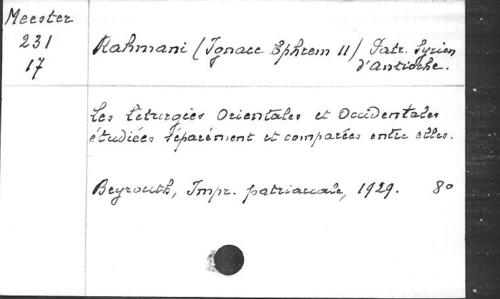 Meester
231
17
Rahmani (Ignace Ephrem II) Patr. Syrien
d'Antioche.
Les Liturgies Orientales et Occidentales
étudiées séparément et comparées entre elles.
Beyrouth, Impr. patriarcale, 1929. 8o